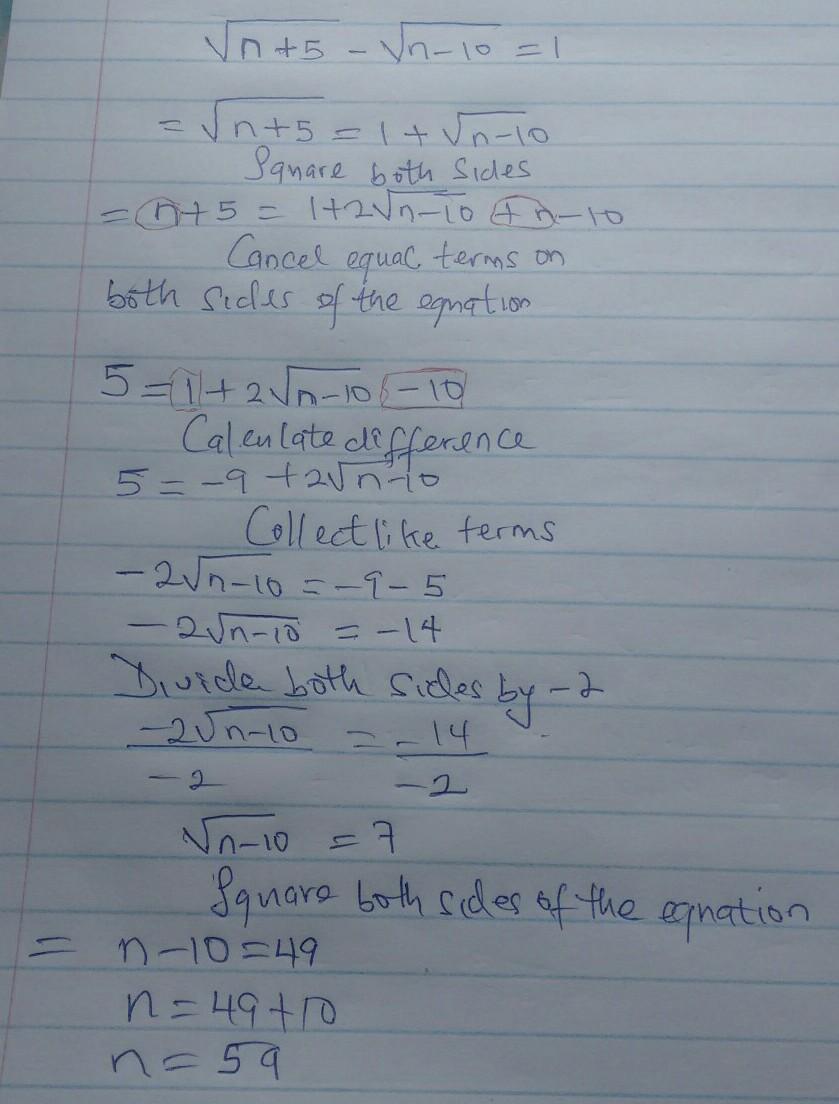 √n+5 - √n-10 = 1
= √n+5 = 1 + √n-10
Square both sides
= n+5 = 1+2√n-10 + n-10
Cancel equal terms on
both sides of the equation
5 = 1 + 2√n-10 -10
Calculate difference
5 = -9 + 2√n-10
Collect like terms
-2√n-10 = -9-5
-2√n-10 = -14
Divide both sides by -2
-2√n-10 = -14
-2 -2
√n-10 = 7
Square both sides of the equation
= n-10=49
n = 49+10
n = 59